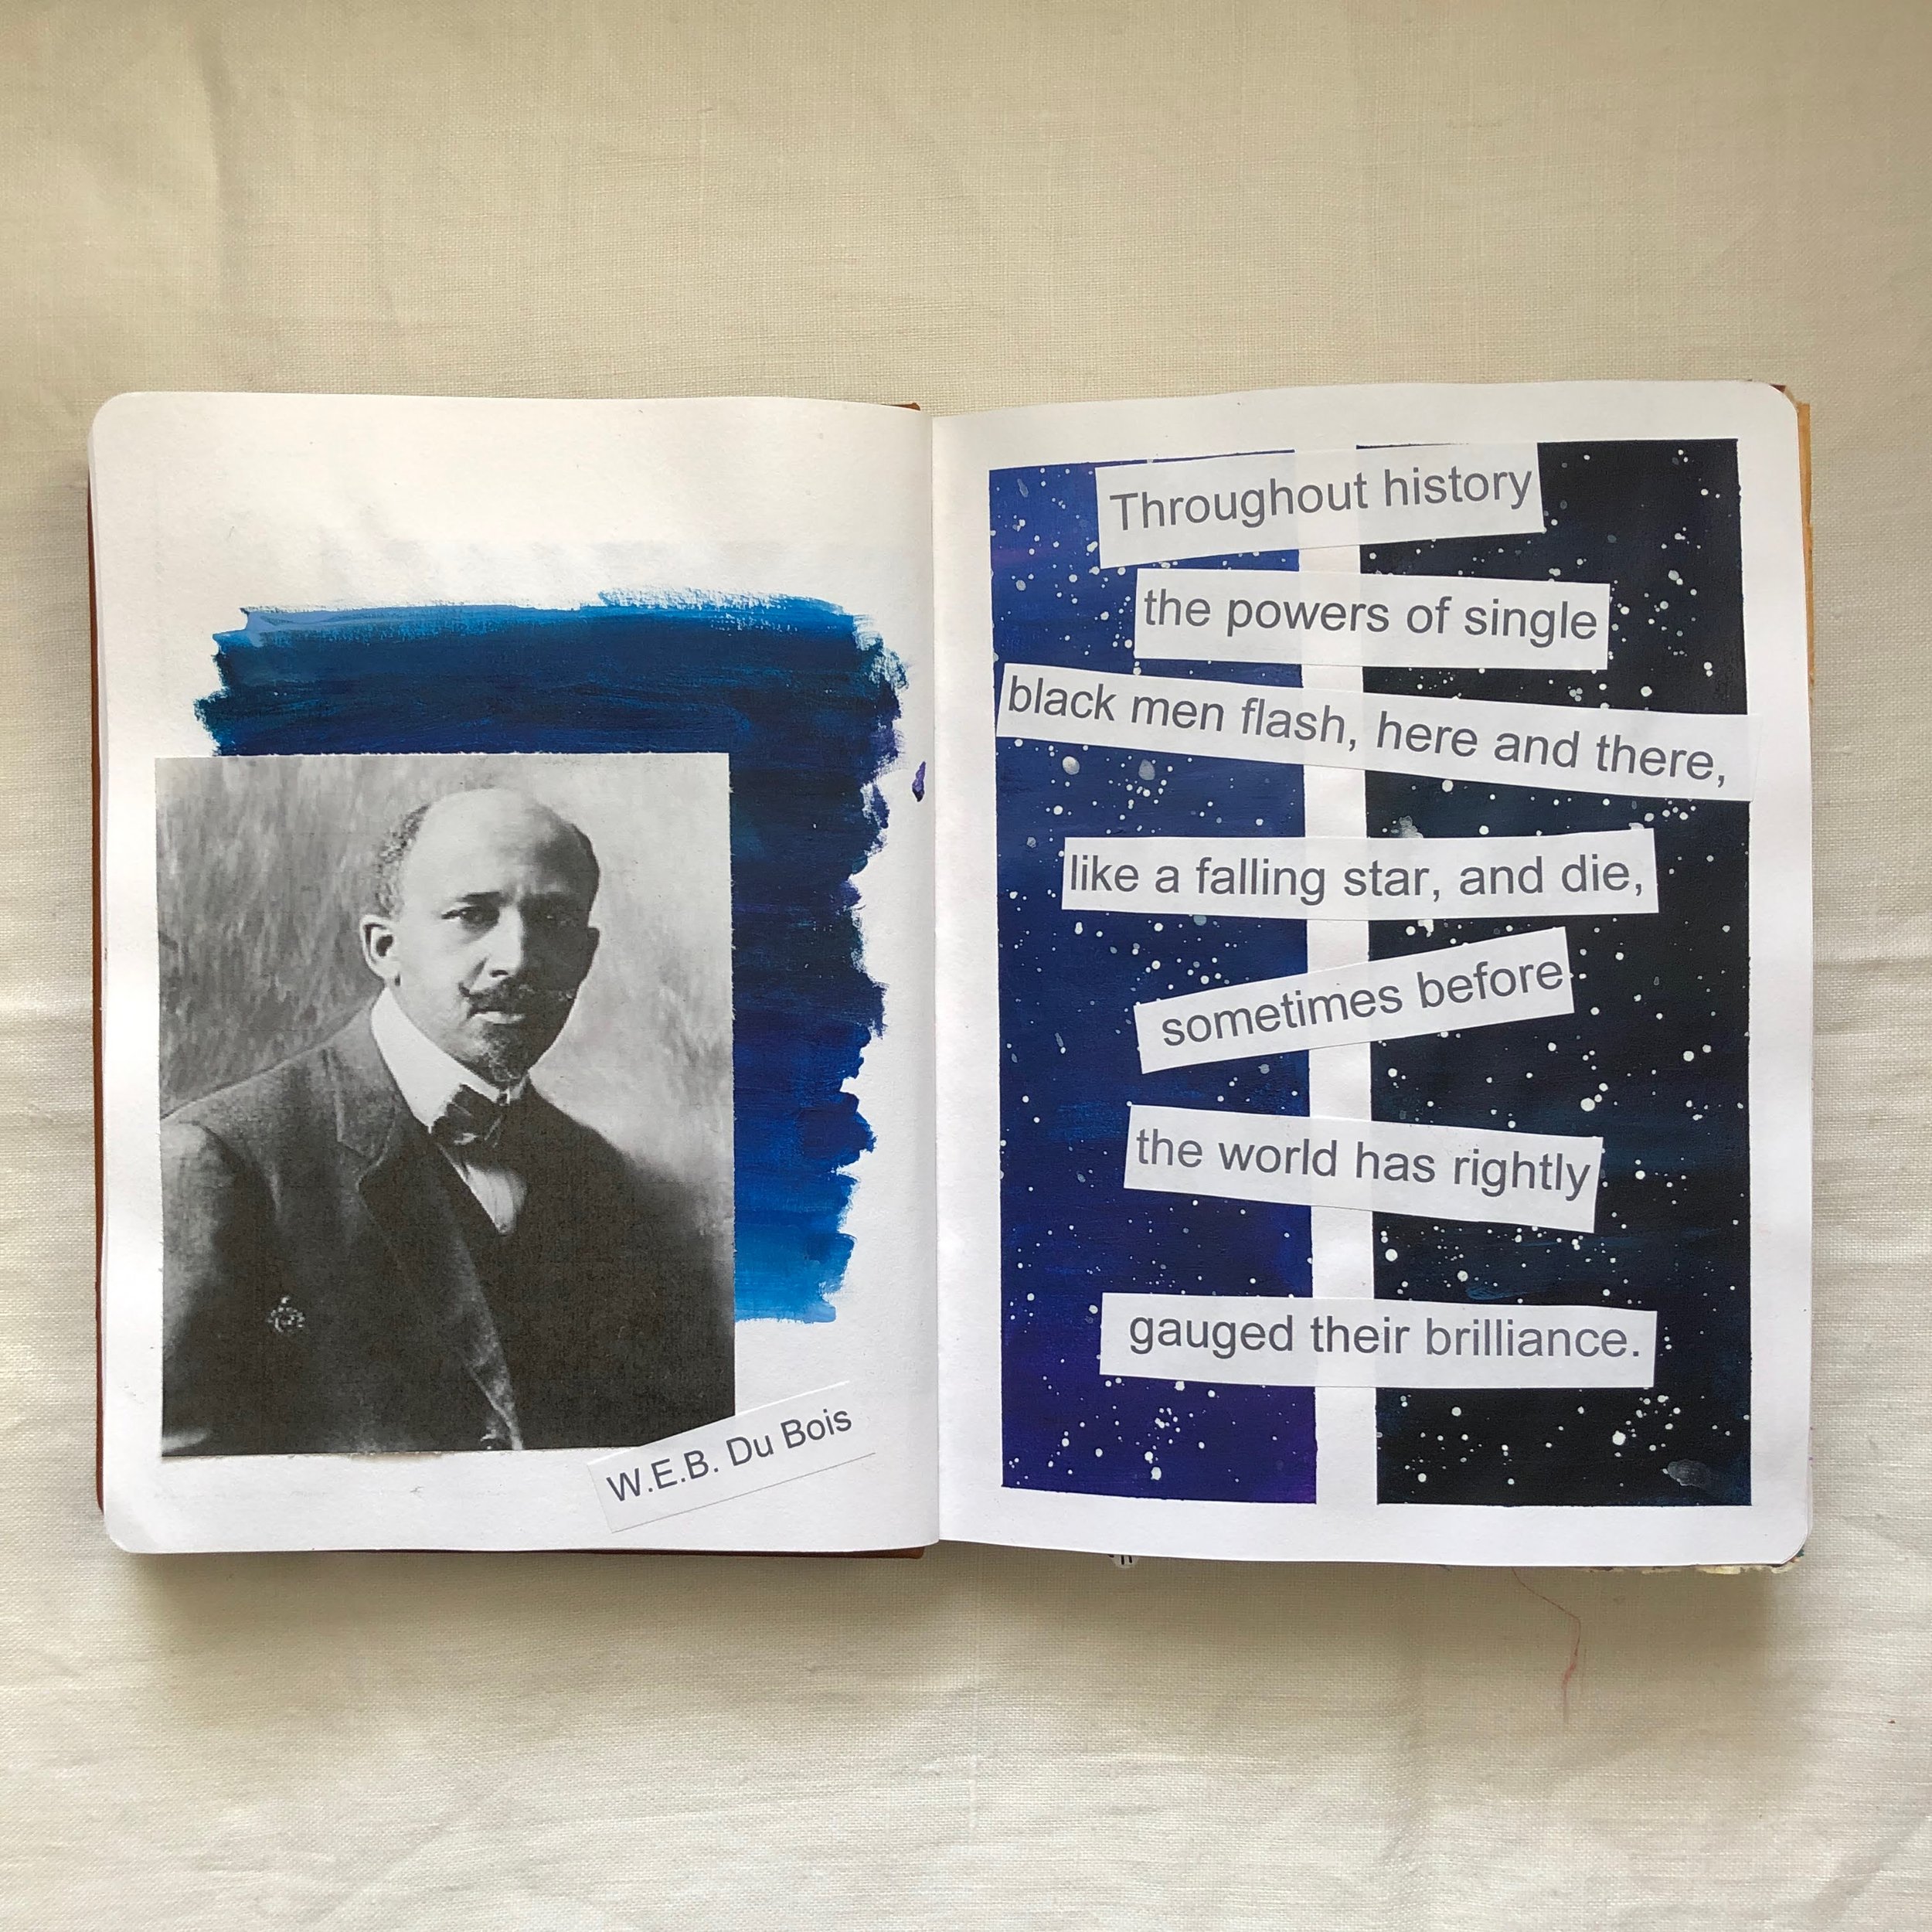 W.E.B. Du Bois
Throughout history
the powers of single
black men flash, here and there,
like a falling star, and die,
sometimes before
the world has rightly
gauged their brilliance.